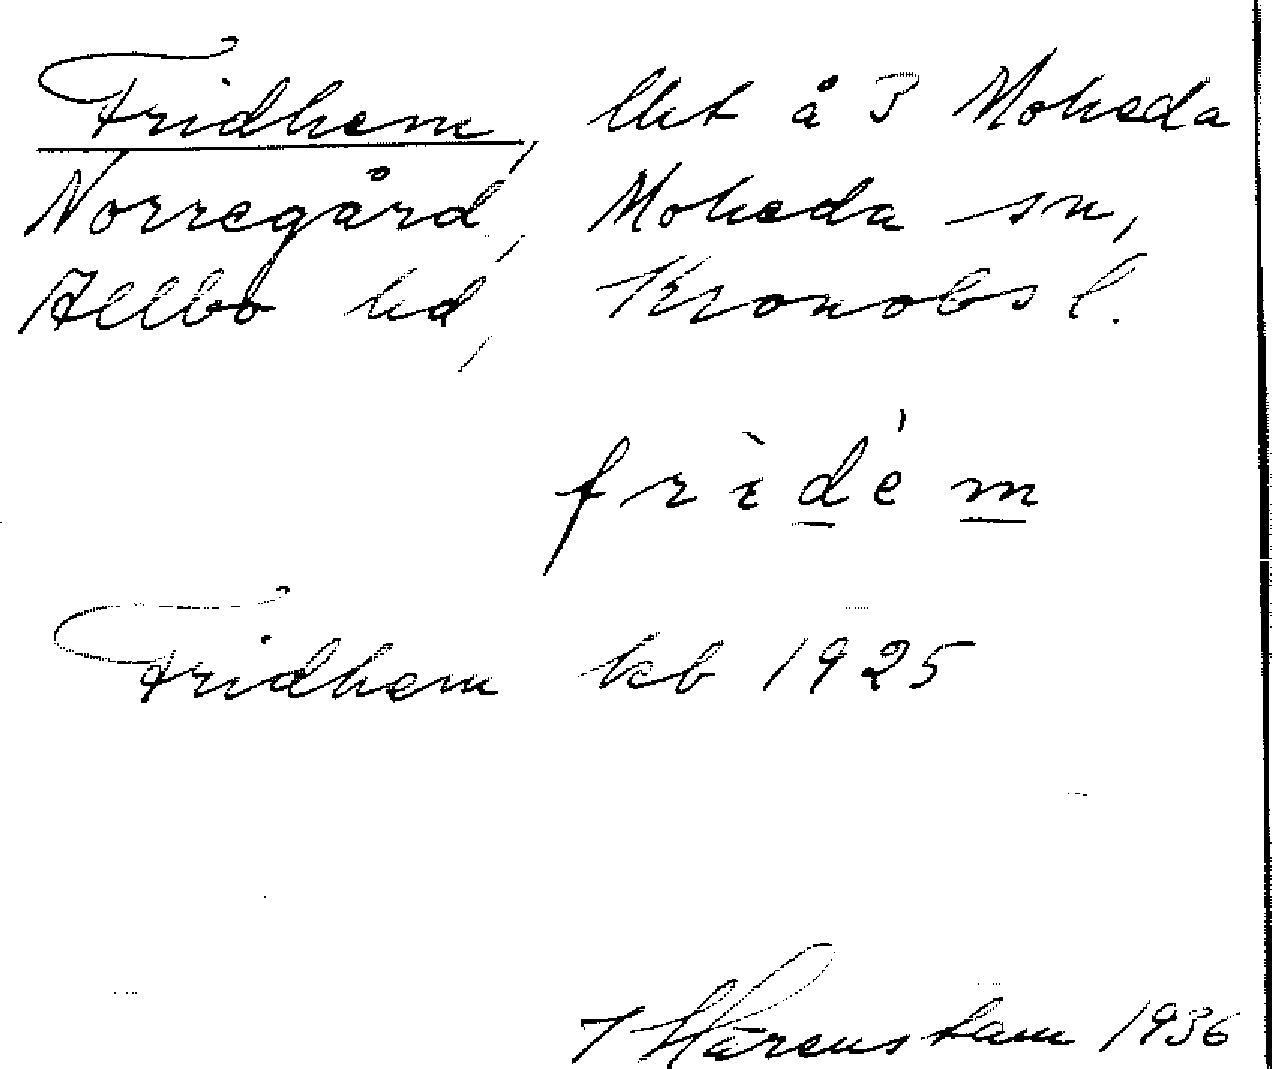 Fridhem, lht å 3 Moheda
Norregård, Moheda sn,
Allbo hd, Kronobs l.
frìdém
Fridhem kb 1925
Härenstam 1936